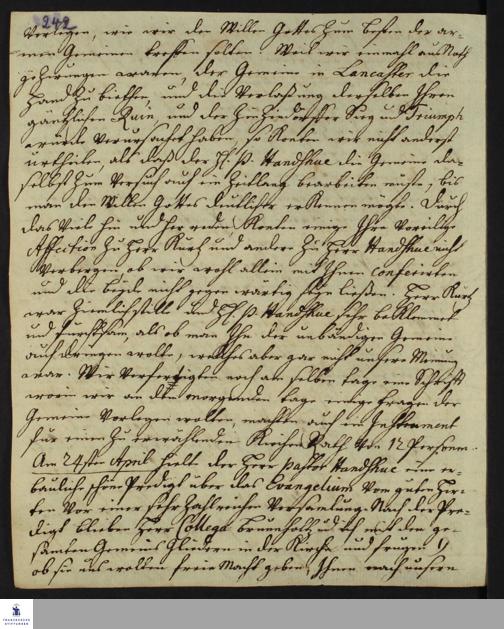 242
verlegen, wie wir den Willen Gottes zum besten der ar-
men Gemeinen treffen solten. Weil wir einmahl aus Noth
gezwungen waren, der Gemeine in Lancaster die
Hand zu biethen, und die Verlaßung derselben Ihren
gäntzlichen Ruin, und der Sieg und Triumph
würde verursachet haben, so konten wir nicht anderst
urtheilen, als daß der H. P. Handshue die Gemeine da-
selbst zum Versuch auf ein Zeitlang bearbeiten müste, bis
man den Willen Gottes deutlicher erkennen mögte. Durch
das viele hin und her reden, konten einige Ihre voreilige
Affection zu Herr Kurtz und andere zu Herr Handshue nicht
verbergen, ob wir wohl allein mit Ihnen conferirten
und die beide nicht gegenwärtig seyn ließen. Herr Kurtz
war ziemlich still und H. P. Handshue sehr beklemmet
und furchtsam, als ob man Ihn der unbändigen Gemeine
aufdringen wolte, welches aber gar nicht unsere Meinung
war. Wir verfertigten noch am selben tage eine Schrift
worin wir am morgenden tage einige fragen der
Gemeine vorlegen wolten, machten auch ein Instrument
für einen zu erwählenden Kirchen Rath von 12 Personen.
Am 24sten April hielt der Herr Pastor Handshue eine er-
bauliche schöne Predigt über das Evangelium vom guten Hir-
ten vor einer sehr zahlreichen Versamlung. Nach der Pre-
digt blieben Herr Collega Brunnholtz und ich mit den ge-
samten Gemeins Gliedern in der Kirche und frugen 1)
ob sie uns wolten freie Macht geben, Ihnen nach unsern
FRANCKESCHE
STIFTUNGEN